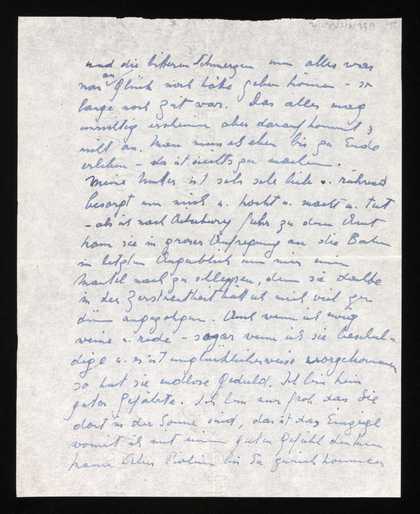 und die bitteren Schmerzen um alles was
man an Glück noch hätte geben können - so
lange noch Zeit war. Das alles mag
unwichtig erscheinen aber darauf kommt's
nicht an. Man muss es eben bis zu Ende
erleben - da ist nichts zu machen.
Meine Mutter ist sehr sehr lieb u. rührend
besorgt um mich u. kocht u. macht u. tut
- als ich nach fuhr zu dem Amt
kam sie in grosser Aufregung an die Bahn
im letzten Augenblick um mir einen
Mantel nach zu schleppen, denn sie dachte
in der Zerstreutheit hätt ich mich viel zu
dünn angezogen. Und wenn ich ewig
weine u. rede - sogar wenn ich sie beschul-
dige u. es ist unglücklicherweise vorgekommen
so hat sie endlose Geduld. Ich bin kein
guter Gefährte. Ich bin nur froh das Sie
dort in der Sonne sind, das ist das Einzige
womit ich mit einem guten Gefühl denken
kann. Alles bis Sie zurück kommen